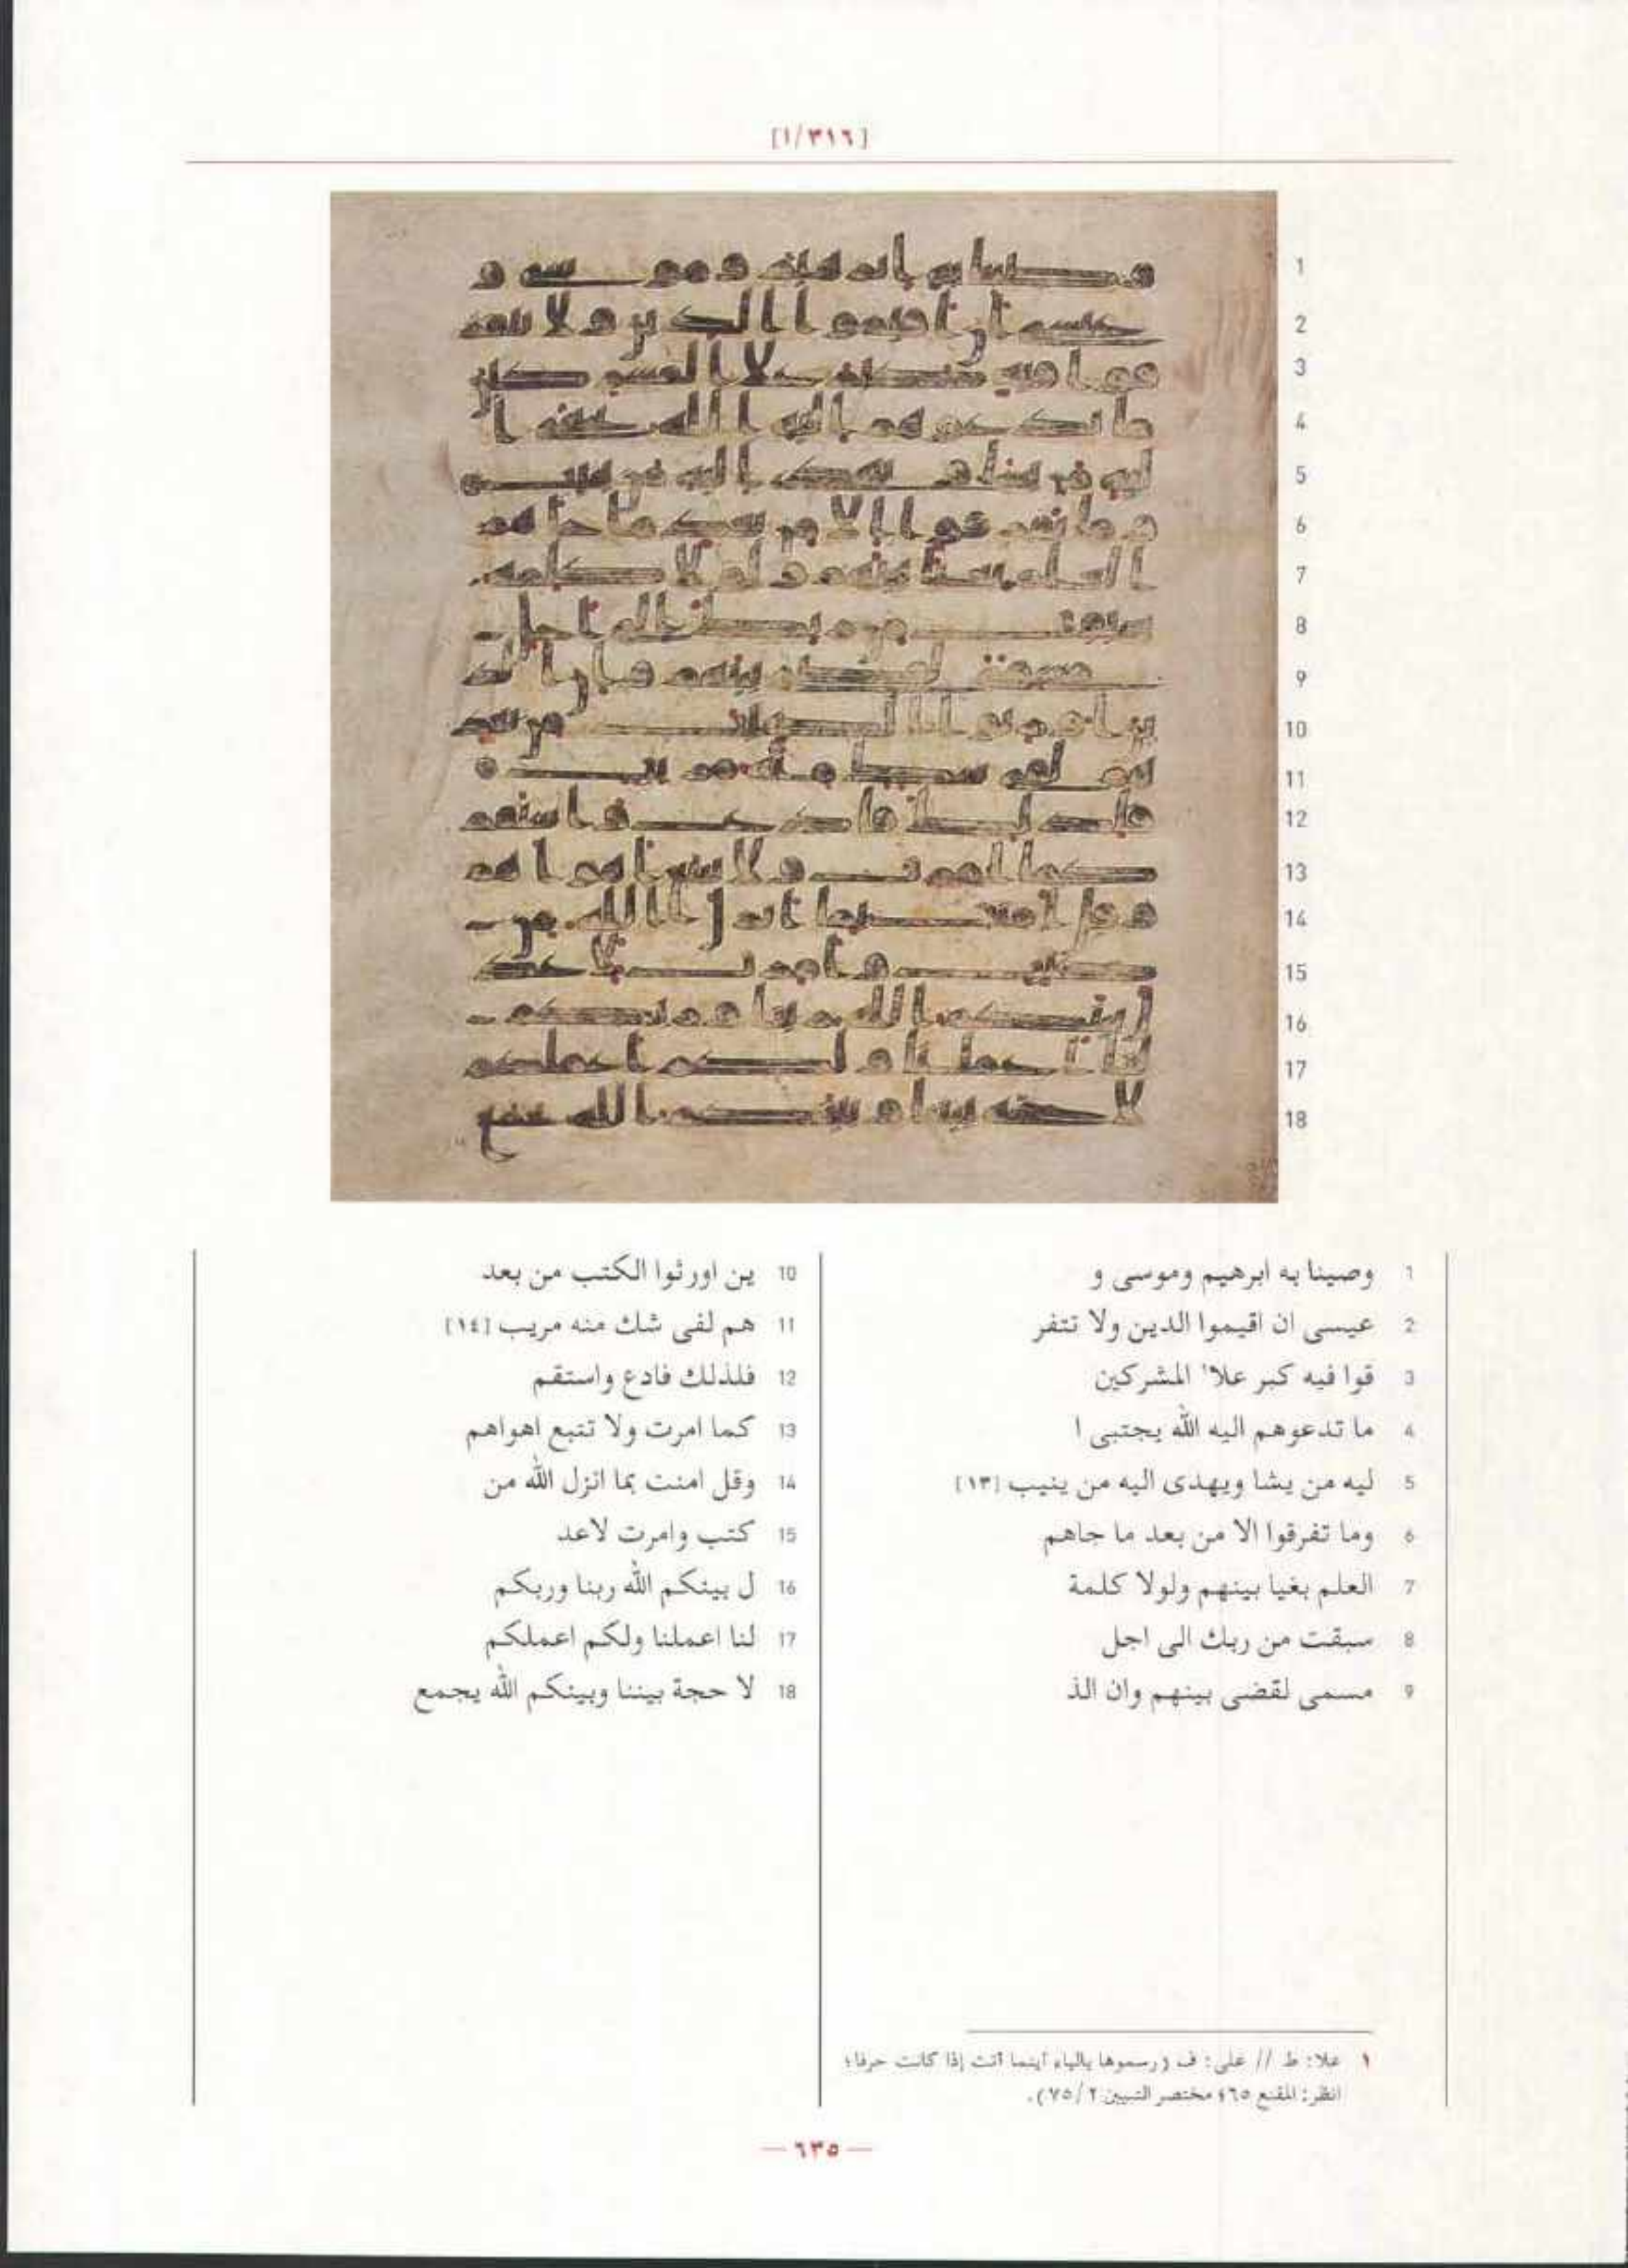 [١/٣١٦]
1 وصينا به ابرهيم وموسى و
2 عيسى ان اقيموا الدين ولا تتفر
3 قوا فيه كبر علا١ المشركين
4 ما تدعوهم اليه الله يجتبى ا
5 ليه من يشا ويهدى اليه من ينيب [١٣]
6 وما تفرقوا الا من بعد ما جاهم
7 العلم بغيا بينهم ولولا كلمة
8 سبقت من ربك الى اجل
9 مسمى لقضى بينهم وان الذ
10 ين اورثوا الكتب من بعد
11 هم لفى شك منه مريب [١٤]
12 فلذلك فادع واستقم
13 كما امرت ولا تتبع اهواهم
14 وقل امنت بما انزل الله من
15 كتب وامرت لاعد
16 ل بينكم الله ربنا وربكم
17 لنا اعملنا ولكم اعملكم
18 لا حجة بيننا وبينكم الله يجمع
١ علا: ط // على: ف (رسموها بالياء أينما أتت إذا كانت حرفا؛
انظر: المقنع ٦٥؛ مختصر التبيين ٢/٧٥).
— ٦٣٥ —